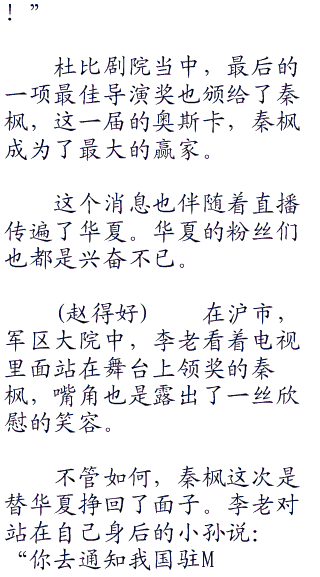 ！”
杜比剧院当中，最后的
一项最佳导演奖也颁给了秦
枫，这一届的奥斯卡，秦枫
成为了最大的赢家。
这个消息也伴随着直播
传遍了华夏。华夏的粉丝们
也都是兴奋不已。
(赵得好) 在沪市，
军区大院中，李老看着电视
里面站在舞台上领奖的秦
枫，嘴角也是露出了一丝欣
慰的笑容。
不管如何，秦枫这次是
替华夏挣回了面子。李老对
站在自己身后的小孙说：
“你去通知我国驻M